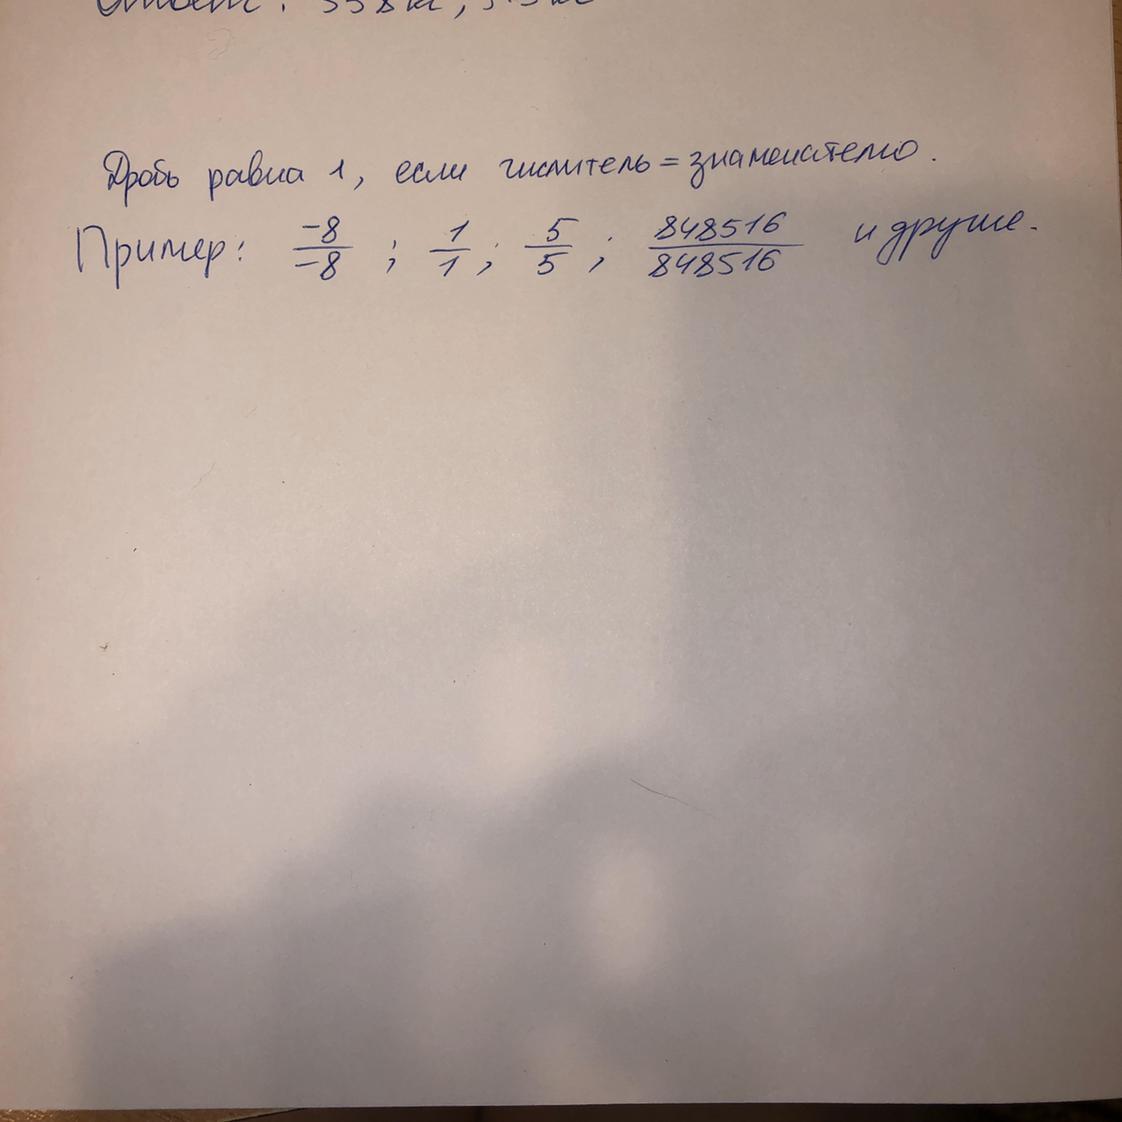 Дробь равна 1, если числитель = знаменателю.
Пример: -8/-8 ; 1/1 ; 5/5 ; 848516/848516 и другие.